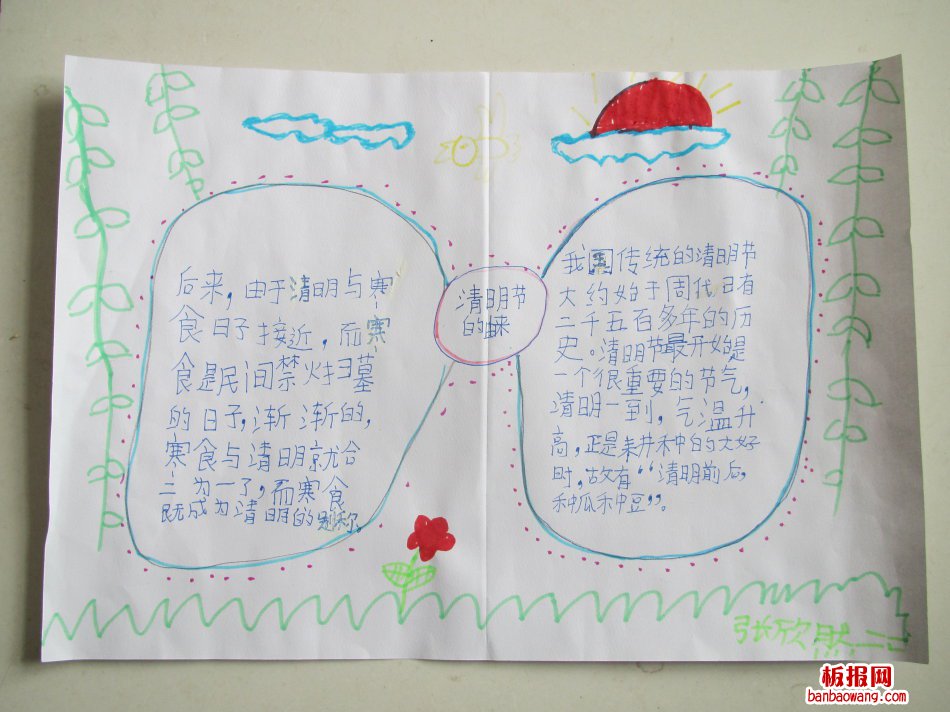 清明节
的由来
后来，由于清明与寒
食日子接近，而寒
食是民间禁火扫墓
的日子，渐渐的，
寒食与清明就合
二为一了，而寒食
既成为清明的别称。
我国传统的清明节
大约始于周代，已有
二千五百多年的历
史。清明节最开始是
一个很重要的节气，
清明一到，气温升
高，正是耕种的大好
时，故有“清明前后，
种瓜种豆”。
张欣然
板报网
banbaowang.com